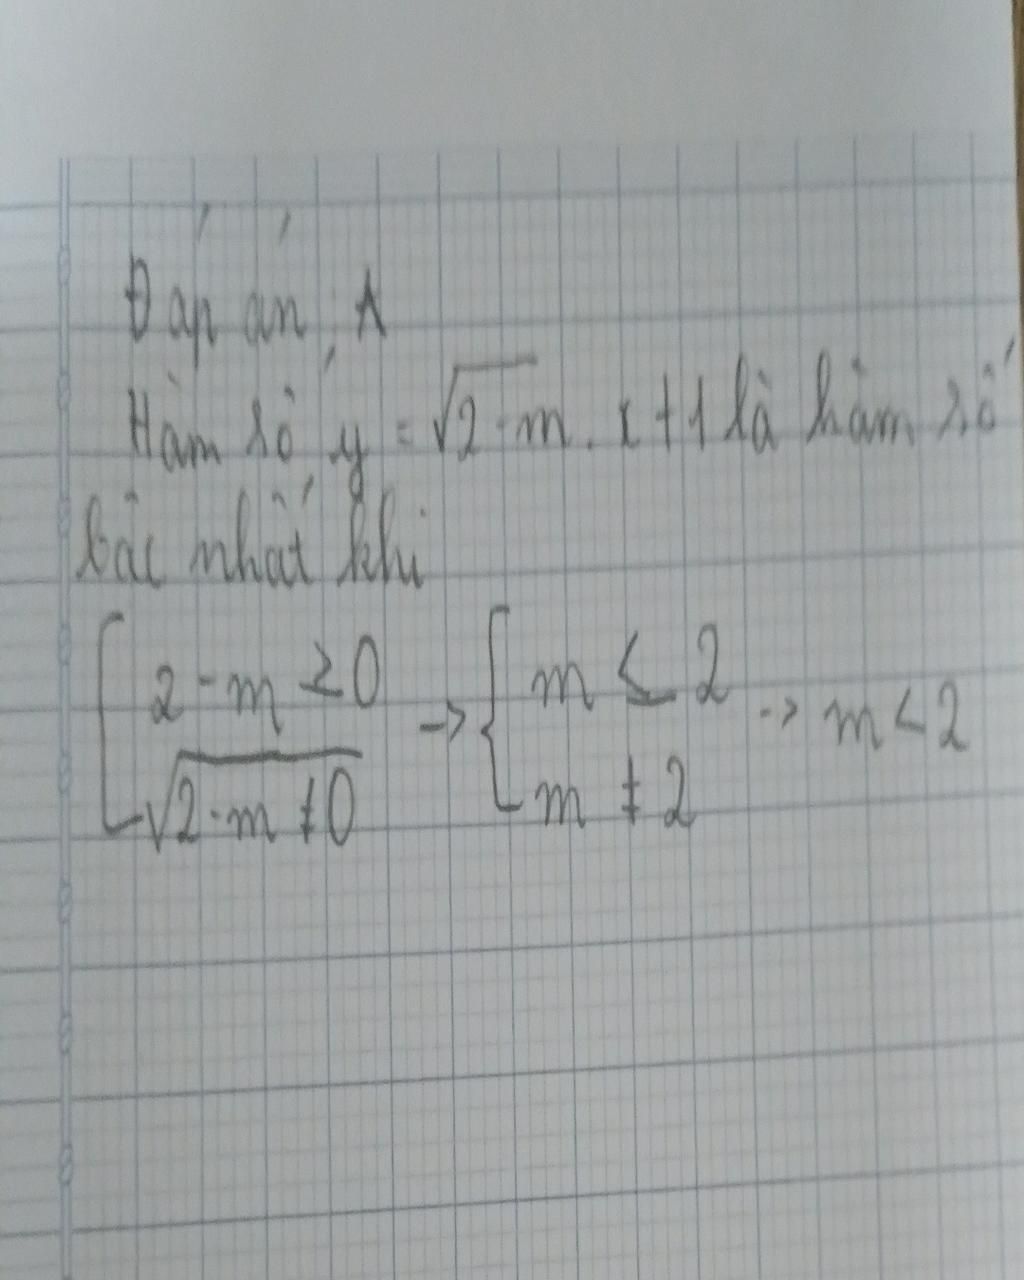 Đáp án A
Hàm số y = √2-m . x+1 là hàm số
bậc nhất khi
[ 2-m ≥ 0 -> { m ≤ 2 -> m < 2
√2-m ≠ 0 m ≠ 2